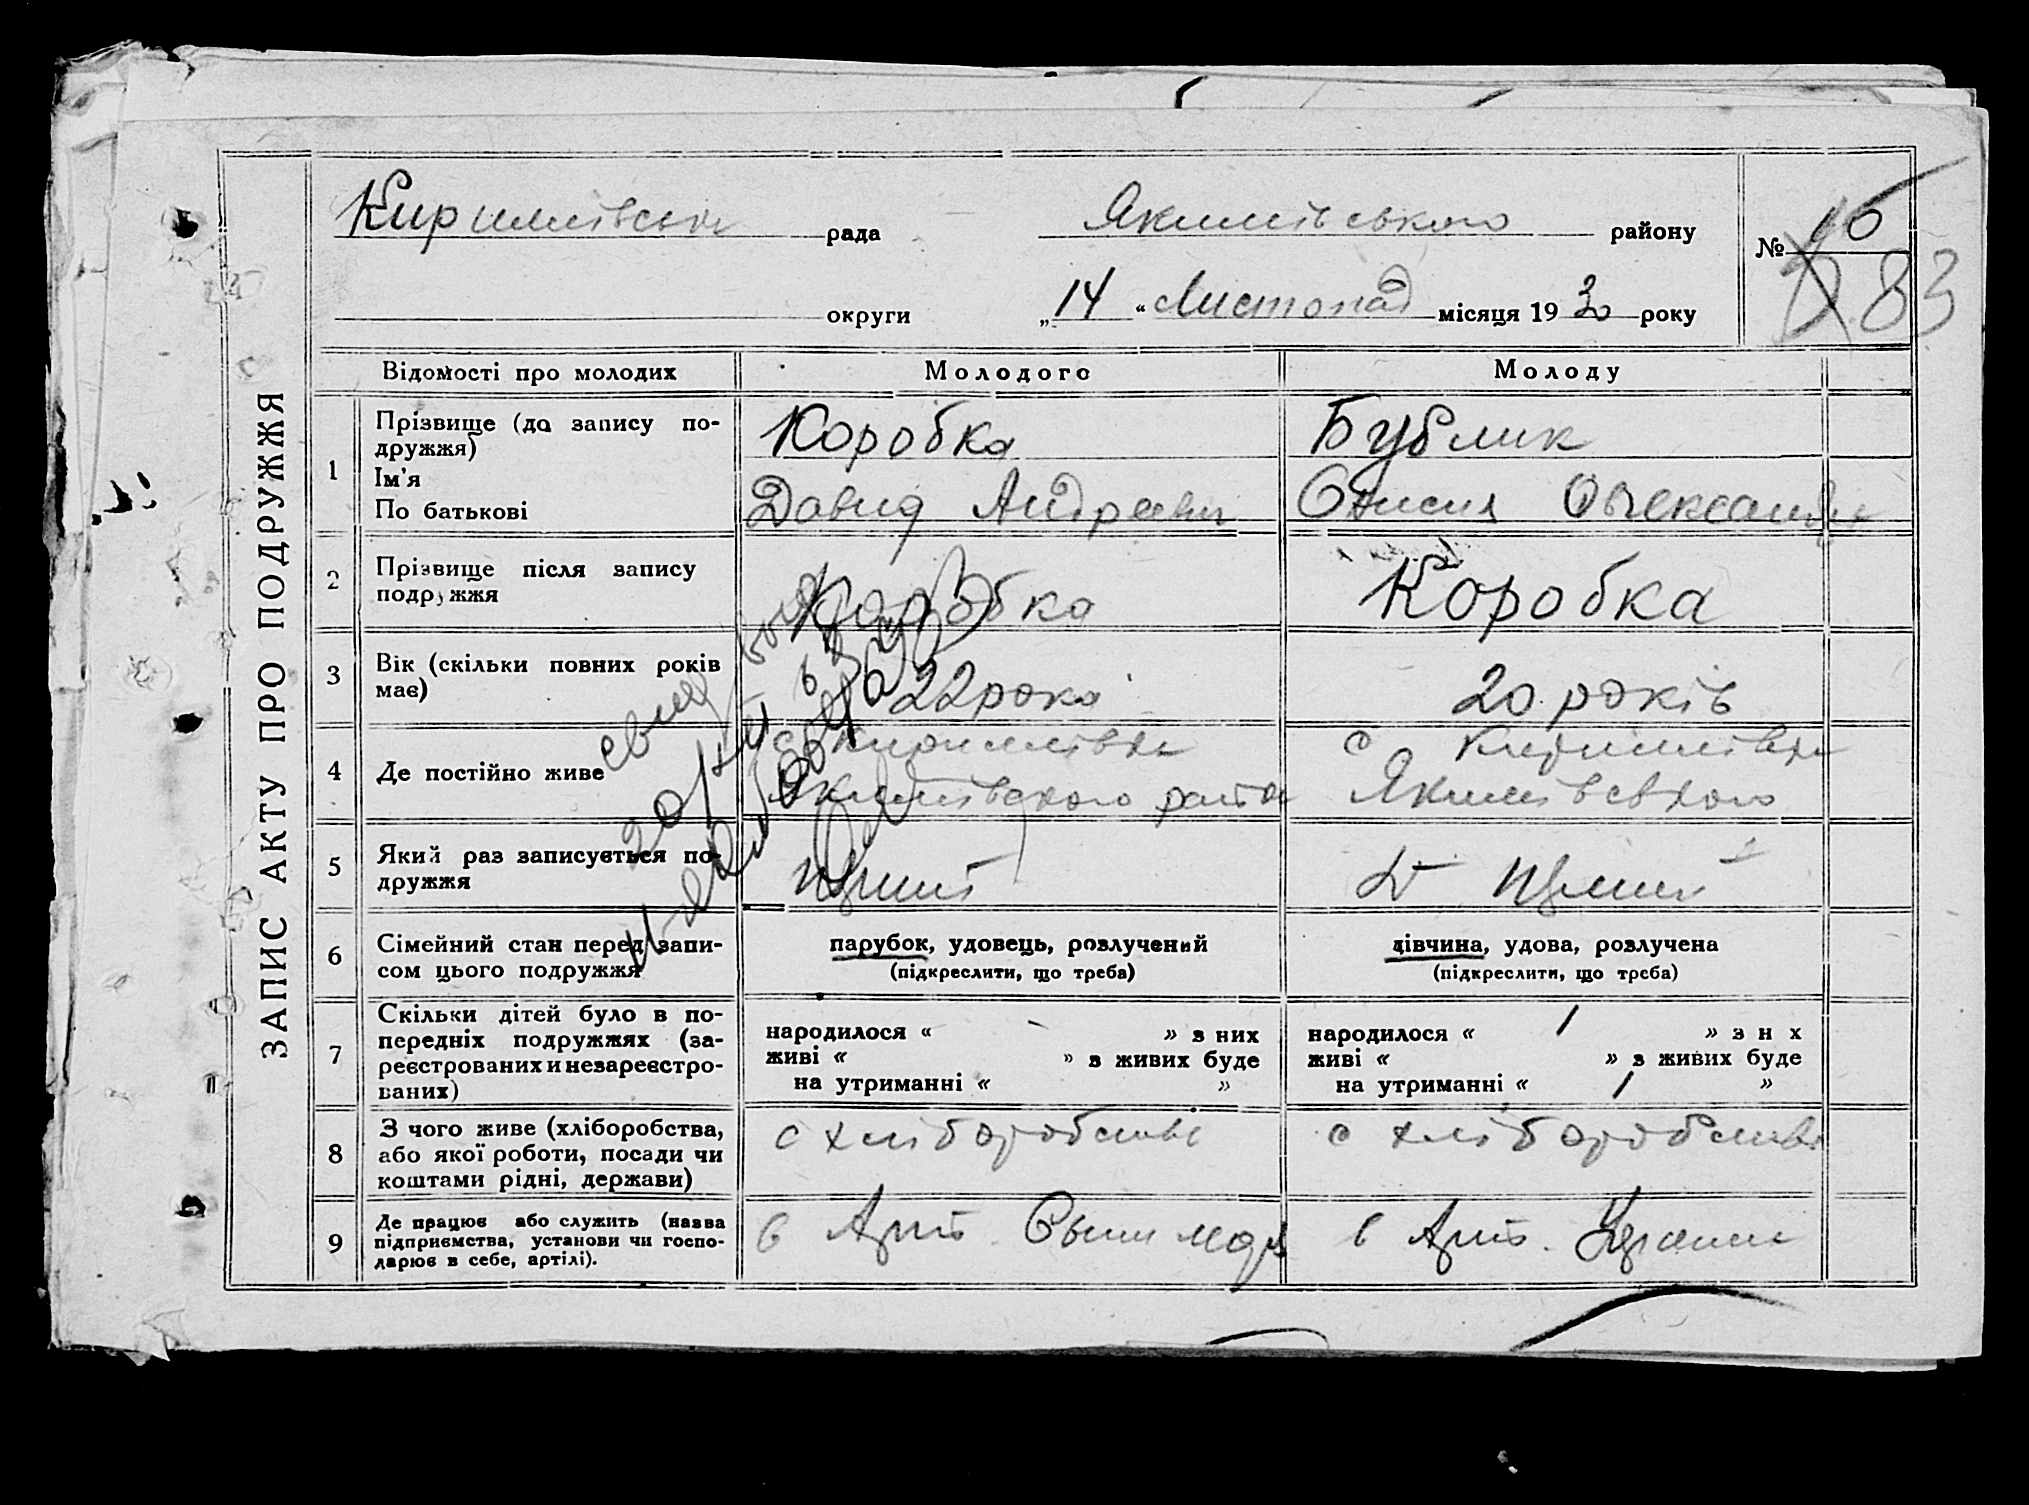 ЗАПИС АКТУ ПРО ПОДРУЖЖЯ
Кирилівська рада Якимівського району
№ 16
83
округи „14“ Листопад місяця 1930 року
Відомості про молодих Молодого Молоду
1 Прізвище (до запису по-
дружжя)
Ім'я
По батькові
Коробка
Давид Андреевич
Бублик
Олександр
2 Прізвище після запису
подружжя
Коробка
Коробка
3 Вік (скільки повних років
має)
22 рока
20 років
4 Де постійно живе
с Кирилівка
Якимівского района
с Кирилівка
Якимівского
5 Який раз записується по-
дружжя
6 Сімейний стан перед запи-
сом цього подружжя
парубок, удовець, розлучений
(підкреслити, що треба)
дівчина, удова, розлучена
(підкреслити, що треба)
7 Скільки дітей було в по-
передніх подружжях (за-
реєстрованих и незареєстро-
ваних)
народилося « » з них
живі « » з живих буде
на утриманні « »
народилося « » з н х
живі « » з живих буде
на утриманні « »
8 З чого живе (хліборобства,
або якої роботи, посади чи
коштами рідні, держави)
с хліборобстві
с хліборобстві
9 Де працює або служить (назва
підприємства, установи чи госпо-
дарює в себе, артілі).
в Арт.
в Арт.